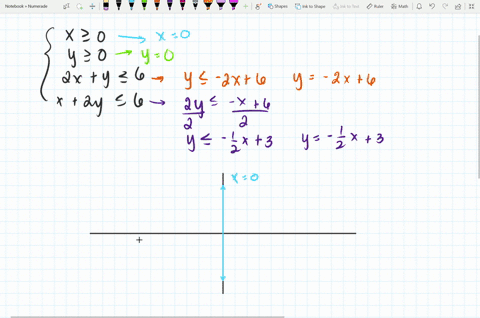 Whiteboard - Numerade
Shapes
Ink to Shape
Ink to Text
Ruler
x ≥ 0 → x = 0
y ≥ 0 → y = 0
2x + y ≤ 6 → y ≤ -2x + 6 y = -2x + 6
x + 2y ≤ 6 → 2y ≤ -x + 6
2 2
y ≤ -1/2 x + 3 y = -1/2 x + 3
x = 0